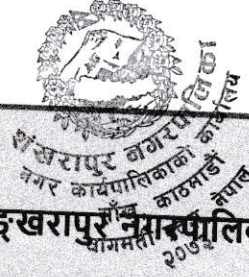 शंखरापुर नगरपालिका
नगर कार्यपालिकाको कार्यालय
साँखु काठमाडौं
बागमती नेपाल
२०७३
ङ्खरापुर नगरपालि